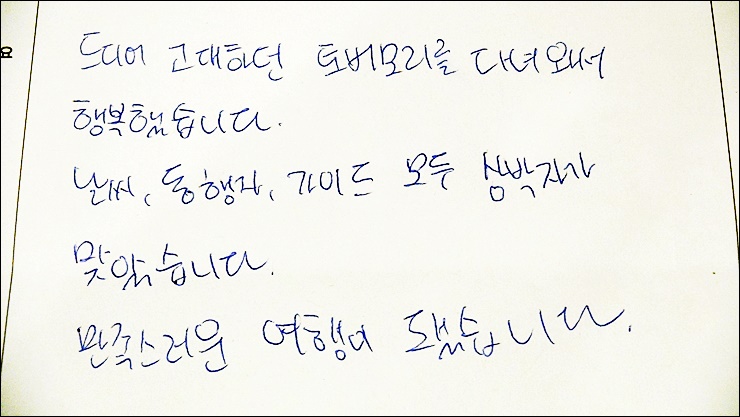 드디어 고대하던 토버모리를 다녀와서
행복했습니다.
날씨, 동행자, 가이드 모두 삼박자가
맞았습니다.
만족스러운 여행이 됐습니다.